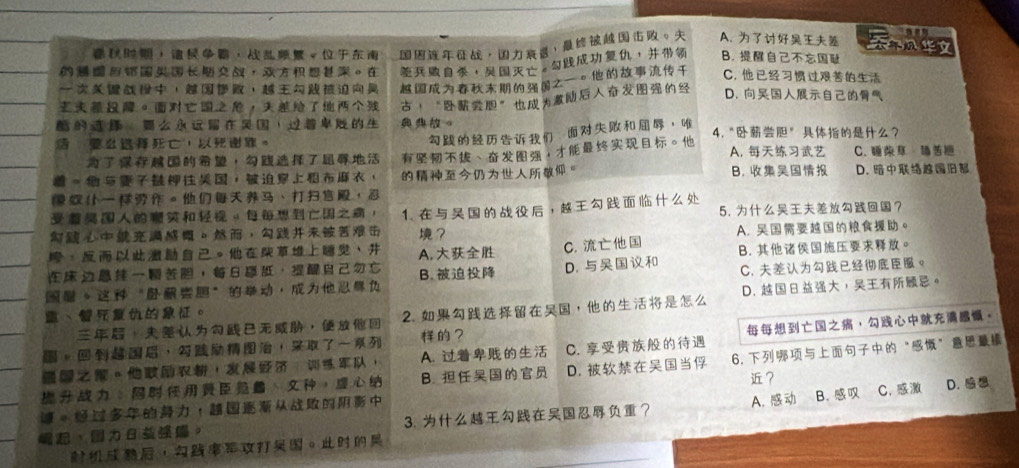 春秋时期，诸侯争霸，战乱频繁。位于东南
的越国与邻国吴国长期交战，双方积怨甚深。在
一次关键战役中，越国惨败，越王勾践被迫向吴
王夫差投降。面对亡国之危，夫差给了他两个残
酷的选择：要么永远留在吴国，过着卑贱的生
活，要么选择死亡，以死谢罪。
为了保存越国的希望，勾践选择了屈辱地活
着。他与妻子被押往吴国，被迫穿上粗布麻衣，
像奴仆一样劳作。他们每天养马、打扫宫殿，忍
受着吴国人的嘲笑和轻视。每每想到亡国之痛，
勾践心中就充满感慨。然而，勾践并未被苦难击
垮，反而以此激励自己。他在柴草堆上睡觉，并
在床边悬挂一颗苦胆，每日舔舐，提醒自己勿忘
国耻。这种“卧薪尝胆”的举动，成为他忍辱负
重、誓死复仇的象征。
三年后，夫差认为勾践已无威胁，便放他回
国。回到越国后，勾践励精图治，采取了一系列
强国之策。他鼓励农耕，发展经济，训练军队，
提升战力；同时任用贤臣范蠡、文种，虚心纳
谏。经过多年的努力，越国逐渐从战败的阴影中
崛起，国力日益强盛。
时机成熟后，勾践率军攻打吴国。此时的吴
国因连年征战，国力衰退，最终被越国击败。夫
差兵败自杀，吴国灭亡。勾践成功复仇，并带领
越国成为春秋末期的强国之一。他的故事流传千
古，“卧薪尝胆”也成为激励后人奋发图强的经
典典故。
勾践的经历告诉我们，面对失败和屈辱，唯
有坚韧不拔、奋发图强，才能最终实现目标。他
的精神至今仍为世人所敬仰。
1. 在与吴国的战役后，越王勾践面临什么处
境？
A. 大获全胜 C. 流亡他国
B. 被迫投降 D. 与吴国议和
2. 如果勾践选择留在吴国，他的生活将是怎么
样的？
A. 过着卑贱的生活 C. 享受贵族般的待遇
B. 担任吴国的官员 D. 被软禁在吴国当俘
3. 为什么越王勾践在吴国忍辱负重？
A. 为了讨好吴王夫差
B. 提醒自己不忘国耻
C. 他已经习惯过艰苦的生活
D. 向吴国人展示自己的骨气
华文
4. “卧薪尝胆”具体指的是什么？
A. 每天练习武艺 C. 睡柴草、舔苦胆
B. 收集吴国情报 D. 暗中联络越国旧部
5. 为什么吴王夫差放勾践回国？
A. 吴国需要越国的粮食援助。
B. 其他诸侯国施压要求释放。
C. 夫差认为勾践已经彻底臣服。
D. 越国日益强大，吴王有所顾忌。
每每想到亡国之痛，勾践心中就充满感慨。
6. 下列哪项与上面句子中的“感慨”意思最接
近？
A. 感动 B. 感叹 C. 感激 D. 感想